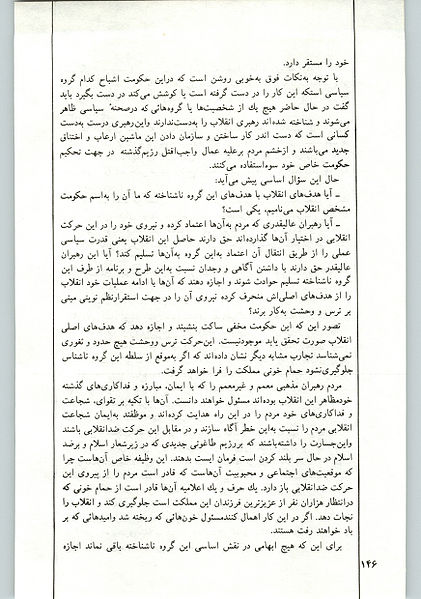 خود را مستقر دارد.
با توجه به‌نکات فوق به‌خوبی روشن است که دراین حکومت اشباح کدام گروه
سیاسی استکه این کار را در دست گرفته است یا کوشش می‌کند در دست بگیرد باید
گفت در حال حاضر هیچ یك از شخصیت‌ها یا گروه‌هائی که درصحنه سیاسی ظاهر
می‌شوند و شناخته شده‌اند رهبری انقلاب را به‌دست‌ندارند واین‌رهبری درست به‌دست
کسانی است که دست اندر کار ساختن و سازمان دادن این ماشین ارعاب و اختناق
جدید می‌باشند و ازخشم مردم برعلیه عمال واجب‌القتل رژیم‌گذشته در جهت تحکیم
حکومت خاص خود سوءاستفاده می‌کنند.
حال این سؤال اساسی پیش می‌آید:
ـ آیا هدف‌های انقلاب با هدف‌های این گروه ناشناخته که ما آن را به‌اسم حکومت
مشخص انقلاب می‌نامیم، یکی است؟
ـ آیا رهبران عالیقدری که مردم به‌آن‌ها اعتماد کرده و نیروی خود را در این حرکت
انقلابی در اختیار آن‌ها گذارده‌اند حق دارند حاصل این انقلاب یعنی قدرت سیاسی
عملی را از طریق انتقال آن اعتماد به‌این گروه به‌آن‌ها تسلیم کند؟ آیا این رهبران
عالیقدر حق دارند با داشتن آگاهی و وجدان نسبت به‌این طرح و برنامه از طرف این
گروه ناشناخته تسلیم حوادث شوند و اجازه دهند که آن‌ها با ادامه عملیات خود انقلاب
را از هدف‌های اصلی‌اش منحرف کرده نیروی آن را در جهت استقرارنظم نوینی مبنی
بر ترس و وحشت به‌کار برند؟
تصور این که این حکومت مخفی ساکت بنشیند و اجازه دهد که هدف‌های اصلی
انقلاب صورت تحقق یابد موجودنیست. این‌حرکت ترس ووحشت هیچ حدود و ثغوری
نمی‌شناسد تجارب مشابه دیگر نشان داده‌اند که اگر به‌موقع از سلطه این گروه ناشناس
جلوگیری‌نشود حمام خونی مملکت را فرا خواهد گرفت.
مردم رهبران مذهبی معمم و غیرمعمم را که با ایمان، مبارزه و فداکاری‌های گذشته
خودمظاهر این انقلاب بوده‌اند مسئول خواهند دانست. آن‌ها با تکیه بر تقوای، شجاعت
و فداکاری‌های خود مردم را در این راه هدایت کرده‌اند و موظفند به‌ایمان شجاعت
انقلابی مردم را نسبت به‌این خطر آگاه سازند و در مقابل این حرکت ضدانقلابی باشند
واین‌جسارت را داشته‌باشند که بررژیم طاغوتی جدیدی که در زیرشعار اسلام و برضد
اسلام در حال سر بلند کردن است فرمان ایست بدهند. این وظیفه خاص آن‌هاست چرا
که موقعیت‌های اجتماعی و محبوبیت آن‌هاست که قادر است مردم را از پیروی این
حرکت ضدانقلابی باز دارد. یك حرف و یك اعلامیه آن‌ها قادر است از حمام خونی که
درانتظار هزاران نفر از عزیزترین فرزندان این مملکت است جلوگیری کند و انقلاب را
نجات دهد. اگر در این کار اهمال کنندمسئول خون‌هائی که ریخته شد وامیدهائی که بر
باد خواهند رفت هستند.
برای این که هیچ ابهامی در نقش اساسی این گروه ناشناخته باقی نماند اجازه
۱۴۶